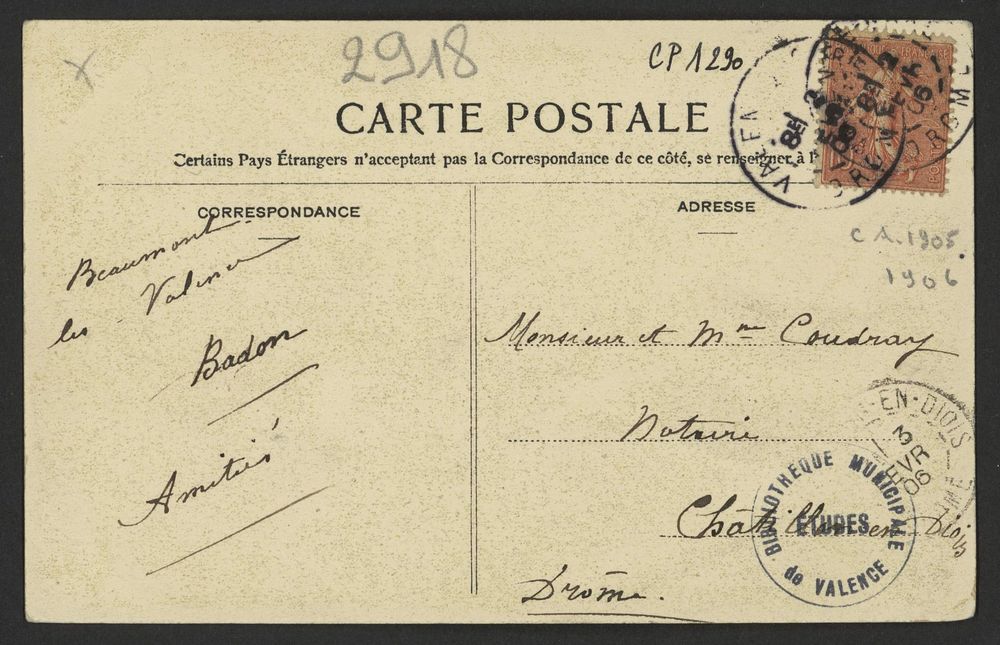 2918
CP 1290
CARTE POSTALE
Certains Pays Étrangers n'acceptant pas la Correspondance de ce côté, se renseigner à l
CORRESPONDANCE
ADRESSE
Beaumont
les - Valence
Badon
Amitiés
C A. 1905
1906
Monsieur et Mme Coudray
Notaire
Châtillon en Diois
Drôme.
EN-DIOIS
3
FEVR
06
BIBLIOTHÈQUE MUNICIPALE
ETUDES
de VALENCE
VALEN
DROME